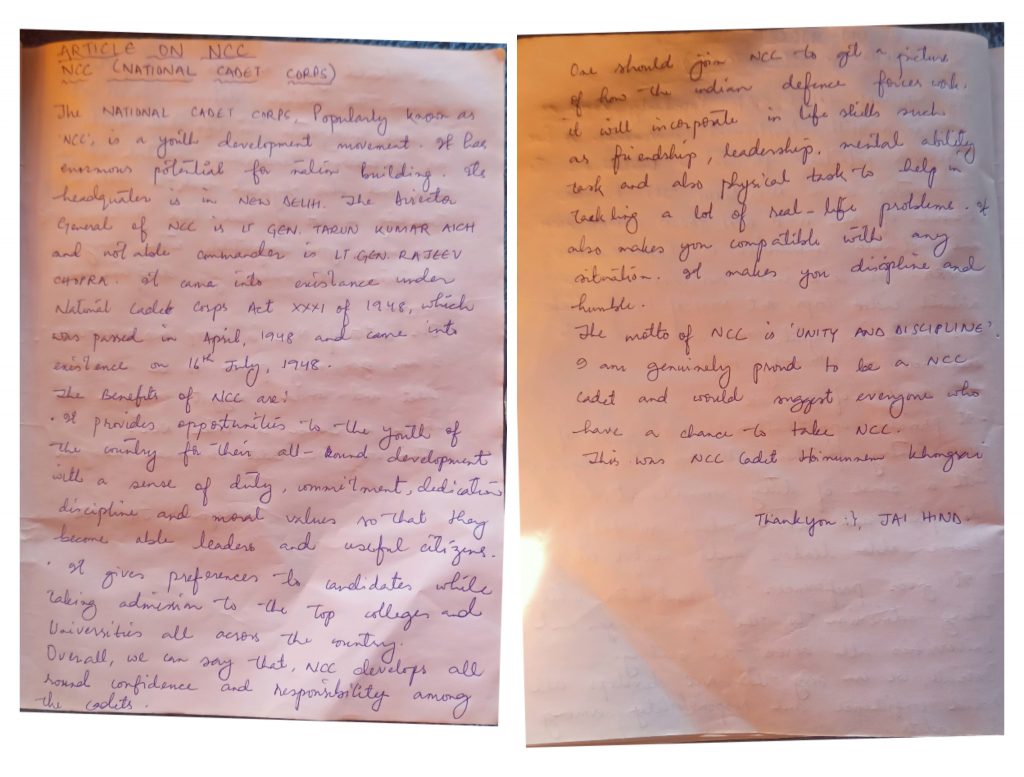 ARTICLE ON NCC
NCC (NATIONAL CADET CORPS)
The NATIONAL CADET CORPS, Popularly known as
'NCC', is a youth development movement. It has
enormous potential for nation building. Its
headquater is in NEW DELHI. The Director
General of NCC is LT GEN. TARUN KUMAR AICH
and notable commander is LT.GEN. RAJEEV
CHOPRA. It came into existance under
National Cadet Corps Act XXXI of 1948, which
was passed in April, 1948 and came into
existence on 16th July, 1948.
The Benefits of NCC are:
• It provides opportunities to the youth of
the country for their all-round development
with a sense of duty, commitment, dedication
discipline and moral values so that they
become able leaders and useful citizens.
• It gives preferences to candidates while
taking admission to the top colleges and
Universities all across the country.
Overall, we can say that, NCC develops all
round confidence and responsibility among
the cadets.
One should join NCC to get a picture
of how the indian defence forces work.
it will incorporate in life skills such
as friendship, leadership, mental ability
task and also physical task to help in
tackling a lot of real-life problems. It
also makes you compatible with any
situation. It makes you discipline and
humble.
The motto of NCC is 'UNITY AND DISCIPLINE'.
I am genuinely proud to be a NCC
cadet and would suggest everyone who
have a chance to take NCC.
This was NCC Cadet
Thank you :), JAI HIND.